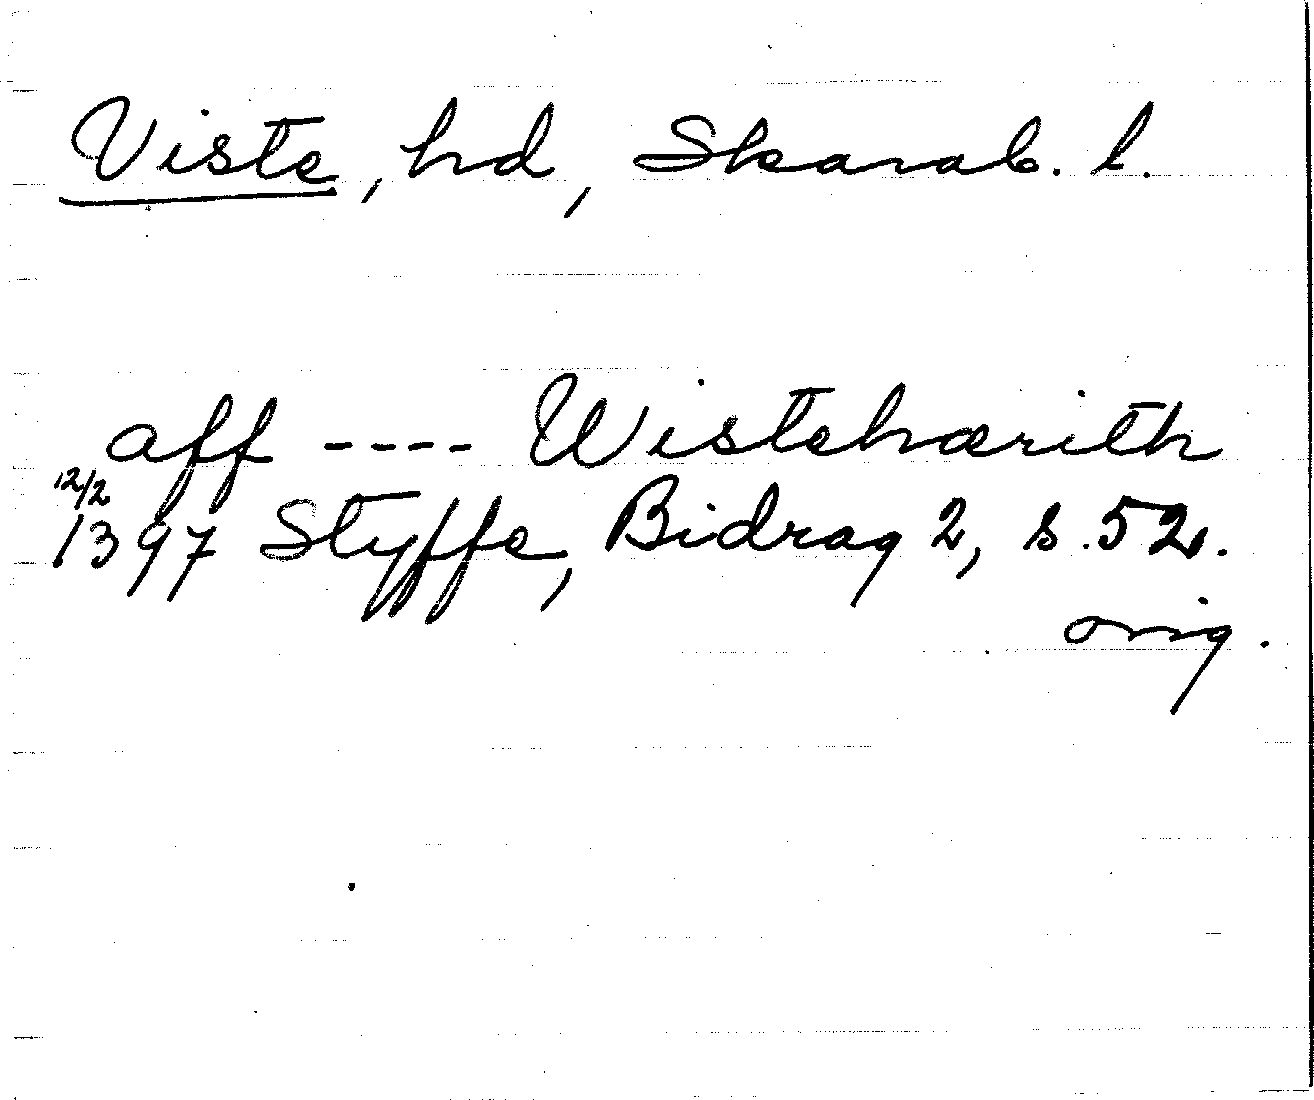 Viste, hd, Skarab. l.
aff ---- Wistehærith
12/2
1397 Styffe, Bidrag 2, s. 52.
orig.